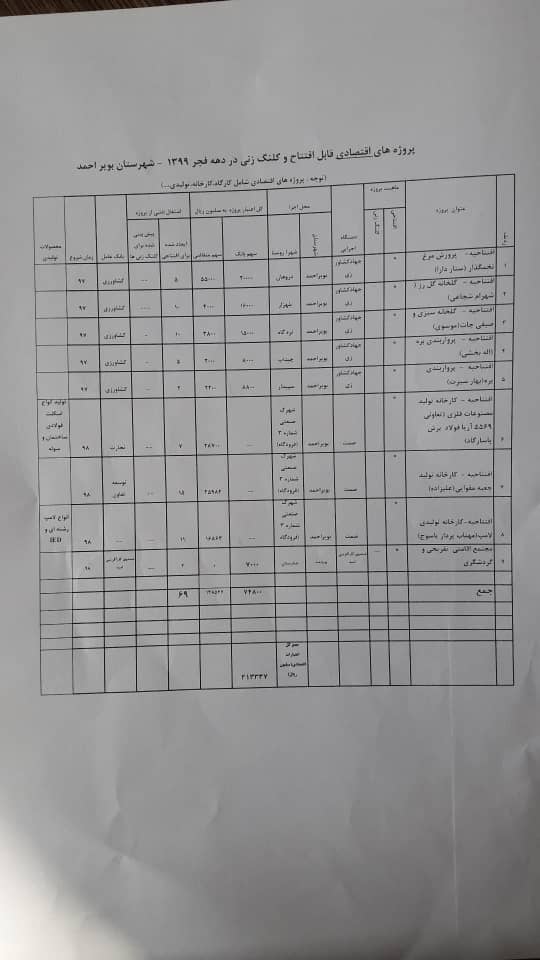 پروژه های اقتصادی قابل افتتاح و کلنگ زنی در دهه فجر ۱۳۹۹ - شهرستان بویر احمد
(توجه : پروژه های اقتصادی شامل کارگاه،کارخانه،تولیدی...)
ردیف
عنوان پروژه
ماهیت پروژه
افتتاحی
کلنگ زنی
دستگاه اجرایی
محل اجرا
شهرستان
شهر/ روستا
کل اعتبار پروژه به میلیون ریال
سهم بانک
سهم متقاضی
اشتغال ناشی از پروژه
ایجاد شده برای افتتاحی
پیش بینی شده برای کلنگ زنی ها
بانک عامل
زمان شروع
محصولات تولیدی
۱ افتتاحیه- پرورش مرغ تخمگذار( ستار دارا) * جهادکشاورزی بویراحمد ۲۰۰۰۰ ۵۵۰۰۰ ۸ --- کشاورزی ۹۷
۲ افتتاحیه - گلخانه گل رز ( شهرام شجاعی) * جهادکشاورزی بویراحمد ۱۶۰۰۰ ۴۰۰۰ ۱۰ --- کشاورزی ۹۷
۳ افتتاحیه - گلخانه سبزی و صیفی جات(موسوی) * جهادکشاورزی بویراحمد ۱۵۰۰۰ ۳۸۰۰ ۱۰ - کشاورزی ۹۷
۴ افتتاحیه - پرواربندی بره (اله بخشی) * جهادکشاورزی بویراحمد ۸۰۰۰ ۲۰۰۰ ۵ - کشاورزی ۹۷
۵ افتتاحیه - پرواربندی بره(بهار سیرت) * جهادکشاورزی بویراحمد ۸۸۰۰ ۲۲۰۰ ۲ --- کشاورزی ۹۷
۶ افتتاحیه - کارخانه تولید مصنوعات فلزی (تعاونی ۵۵۶۹ آریا فولاد برش پاسارگاد) * صمت بویراحمد شهرک صنعتی شماره ۳ (فرودگاه) --- ۲۸۷۰۰ ۷ --- تجارت ۹۸ تولید انواع اسکلت فولادی ساختمان و سوله
۷ افتتاحیه - کارخانه تولید جعبه مقوایی(علیزاده) * صمت بویراحمد شهرک صنعتی شماره ۳ (فرودگاه) --- ۲۵۹۸۶ ۱۵ --- توسعه تعاون ۹۸
۸ افتتاحیه-کارخانه تولیدی لامپ(مهتاب پرداز یاسوج) * صمت بویراحمد شهرک صنعتی شماره ۳ (فرودگاه) --- ۱۶۸۶۳ ۱۱ --- --- ۹۸ انواع لامپ رشته ای و lED
۹ مجتمع اقامتی تفریحی و گردشگری * --- ۷۰۰۰ ۰ ۲ --- ۹۸
جمع ۷۴۸۰۰ ۶۹
جمع کل اعتبارات اقتصادی(میلیون ریال) ۲۱۳۳۳۷